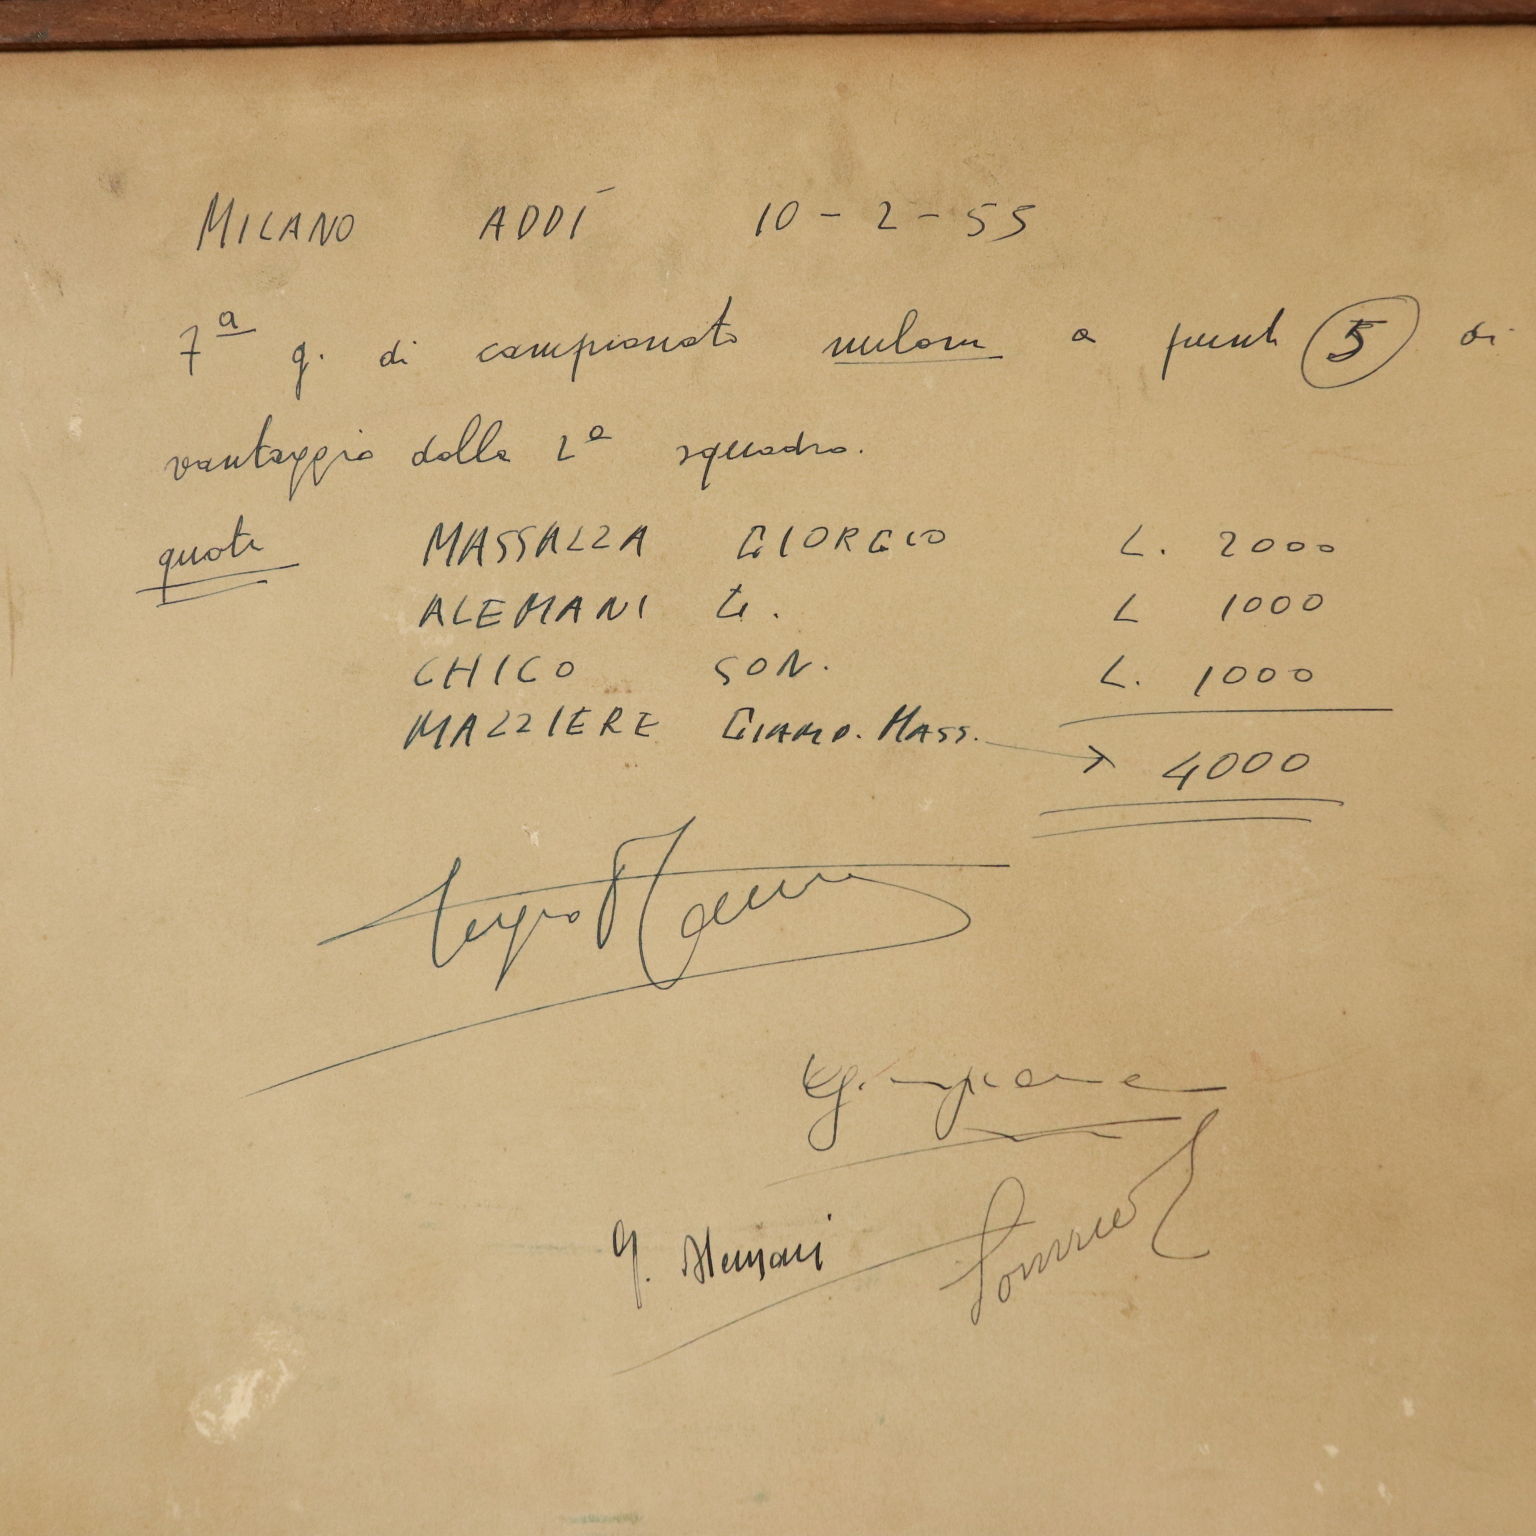 MILANO ADDÍ 10-2-55
7ª g. di campionato milan a punti 5 di
vantaggio dalla 2ª squadra.
quote MASSAZZA GIORGIO L. 2000
ALEMANI G. L 1000
CHICO SON. L. 1000
MAZZIERE GIAMP. MASS. → 4000
G. Alemani